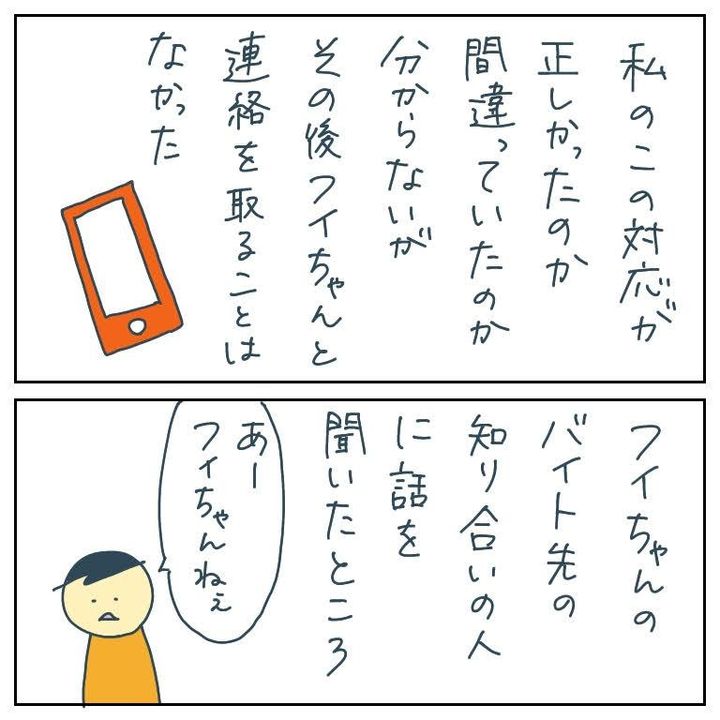 私のこの対応が
正しかったのか
間違っていたのか
分からないが
その後フイちゃんと
連絡を取ることは
なかった
フイちゃんの
バイト先の
知り合いの人
に話を
聞いたところ
あー
フィちゃんねぇ